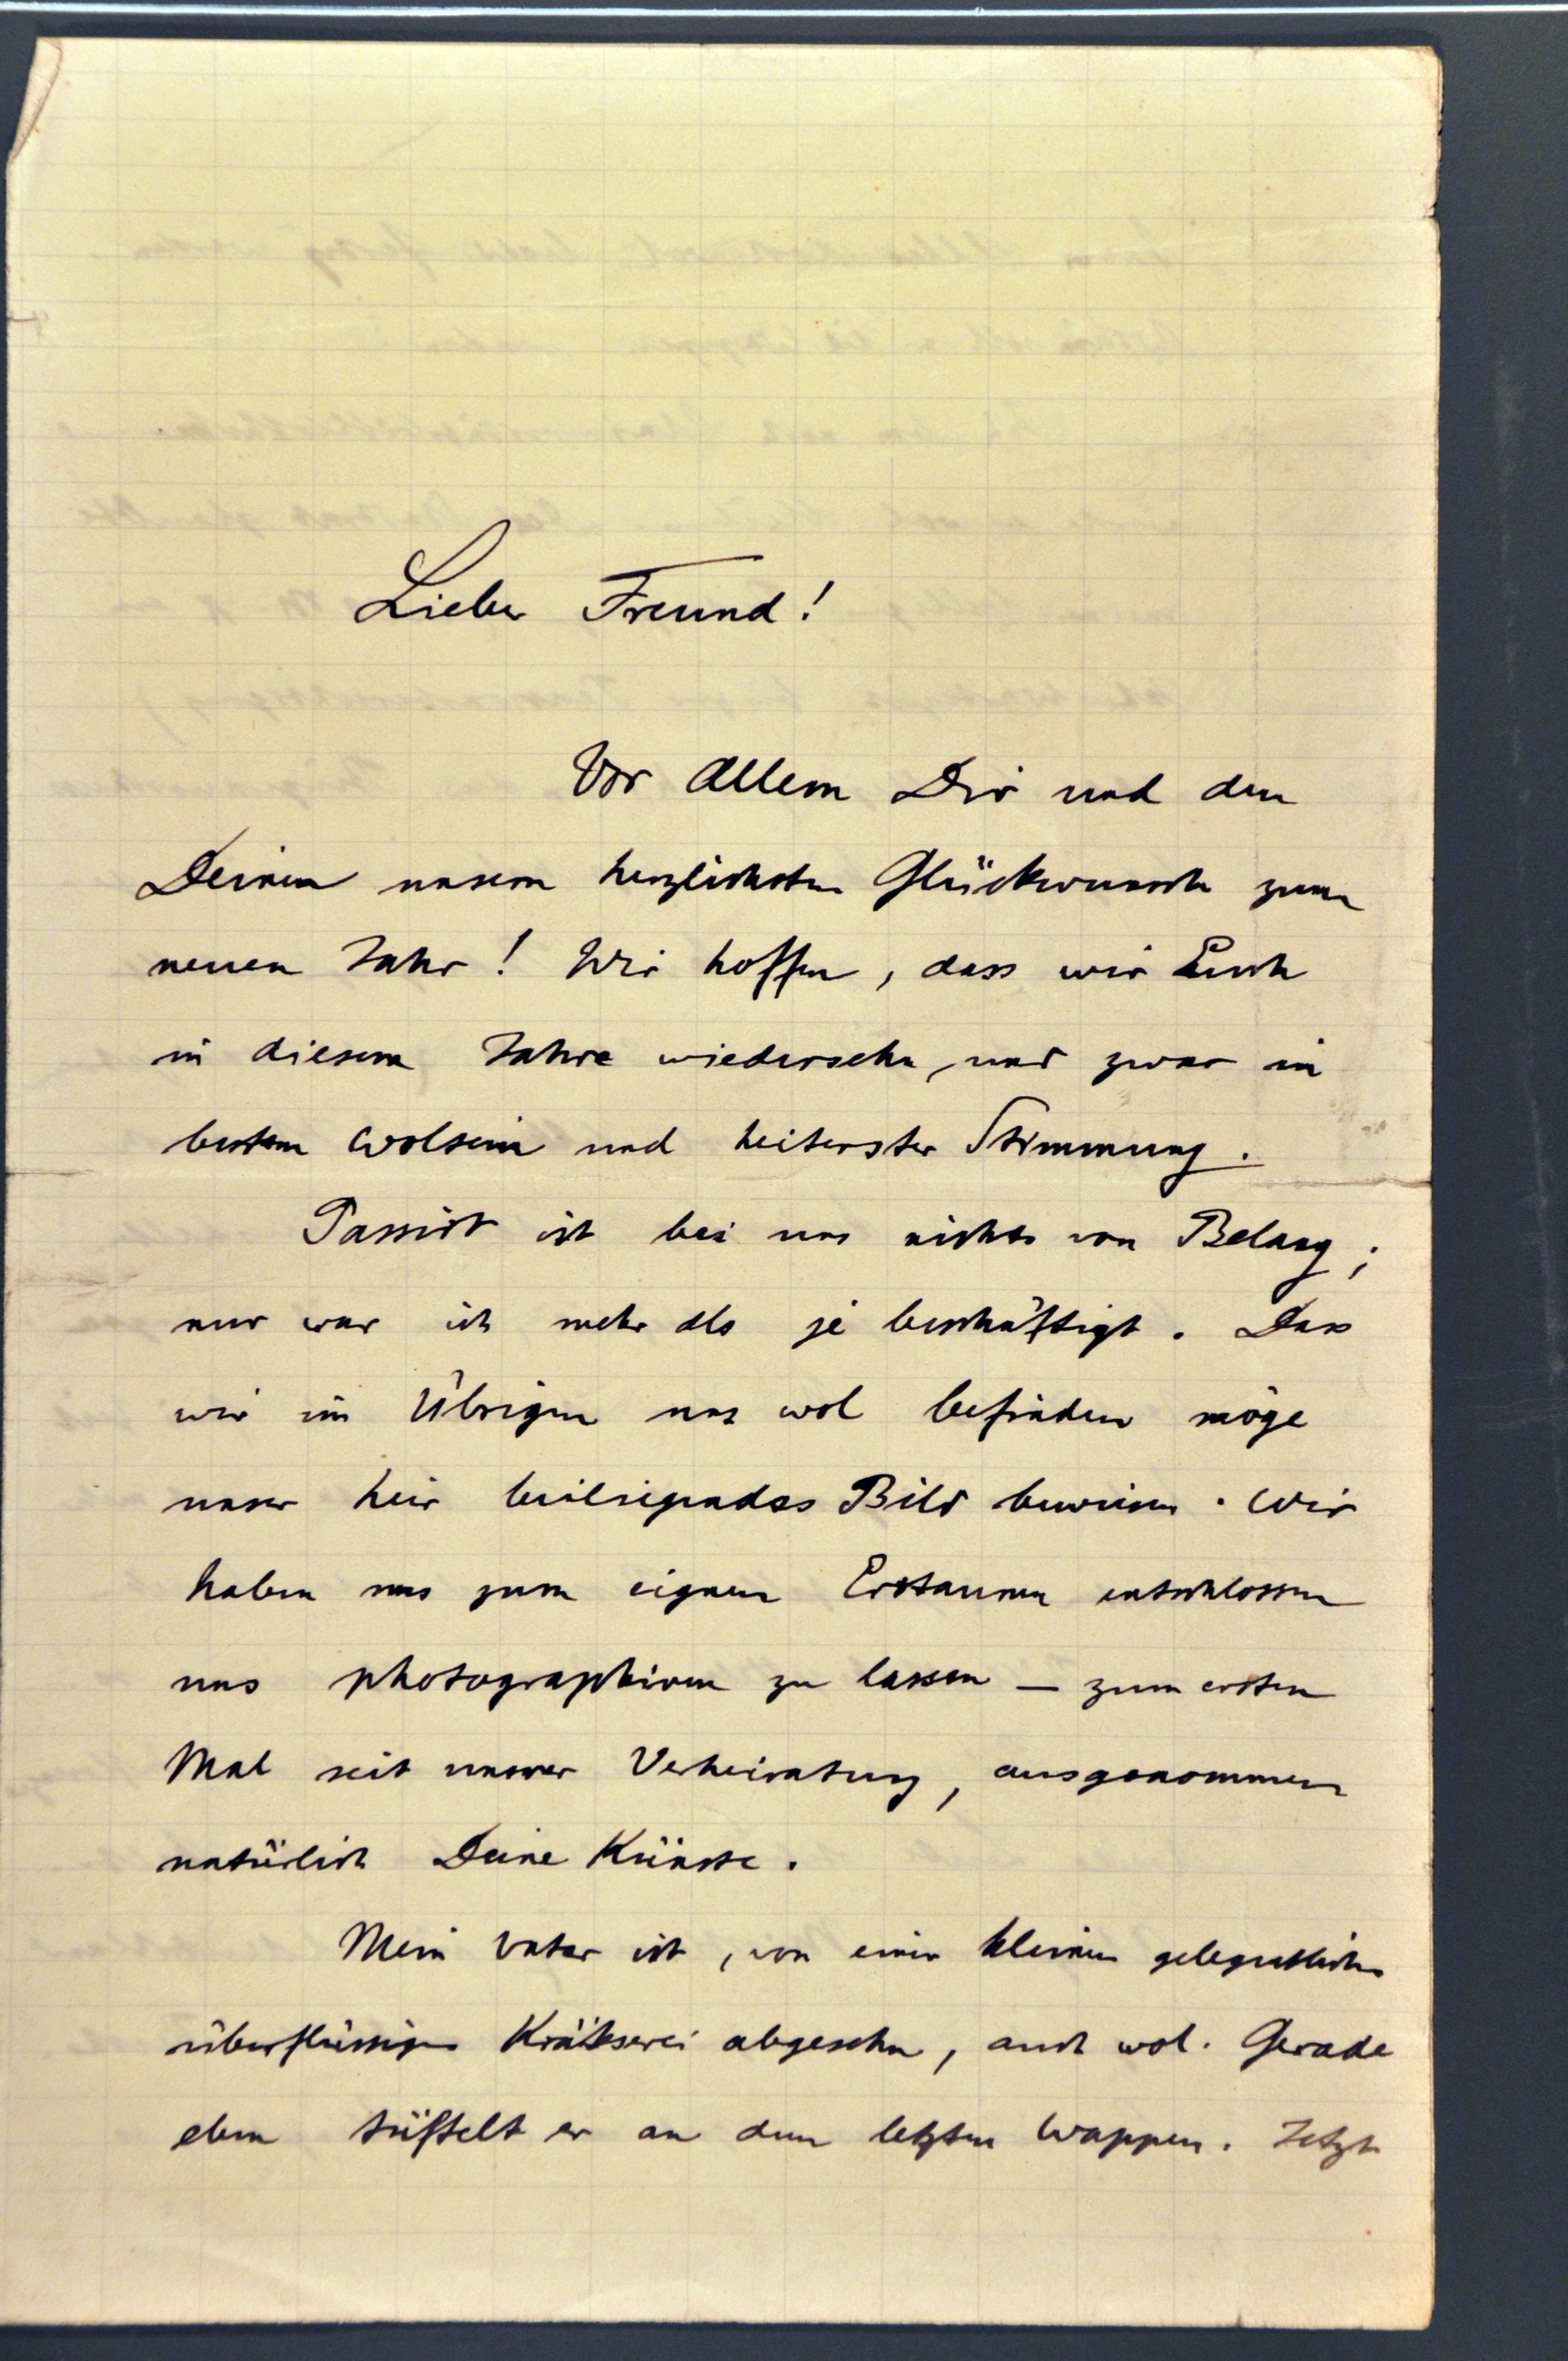 Lieber Freund!
Vor Allem Dir und den
Deinen unsern herzlichsten Glückwunsch zum
neuen Jahr! Wir hoffen, dass wir Euch
in diesem Jahre wiedersehn, und zwar in
bestem Wolsein und heiterster Stimmung.
Passirt ist bei uns nichts von Belang;
nur war ich mehr als je beschäftigt. Dass
wir im Übrigen uns wol befinden möge
unser hier beiliegendes Bild beweisen. Wir
haben uns zum eignen Erstaunen entschlossen
uns photographiren zu lassen — zum ersten
Mal seit unserer Verheiratung, ausgenommen
natürlich Deine Künste.
Mein Vater ist, von einer kleinen gelegentlichen
überflüssigen Kräkserei abgesehn, auch wol. Gerade
eben tüftelt er an dem letzten Wappen. Jetzt